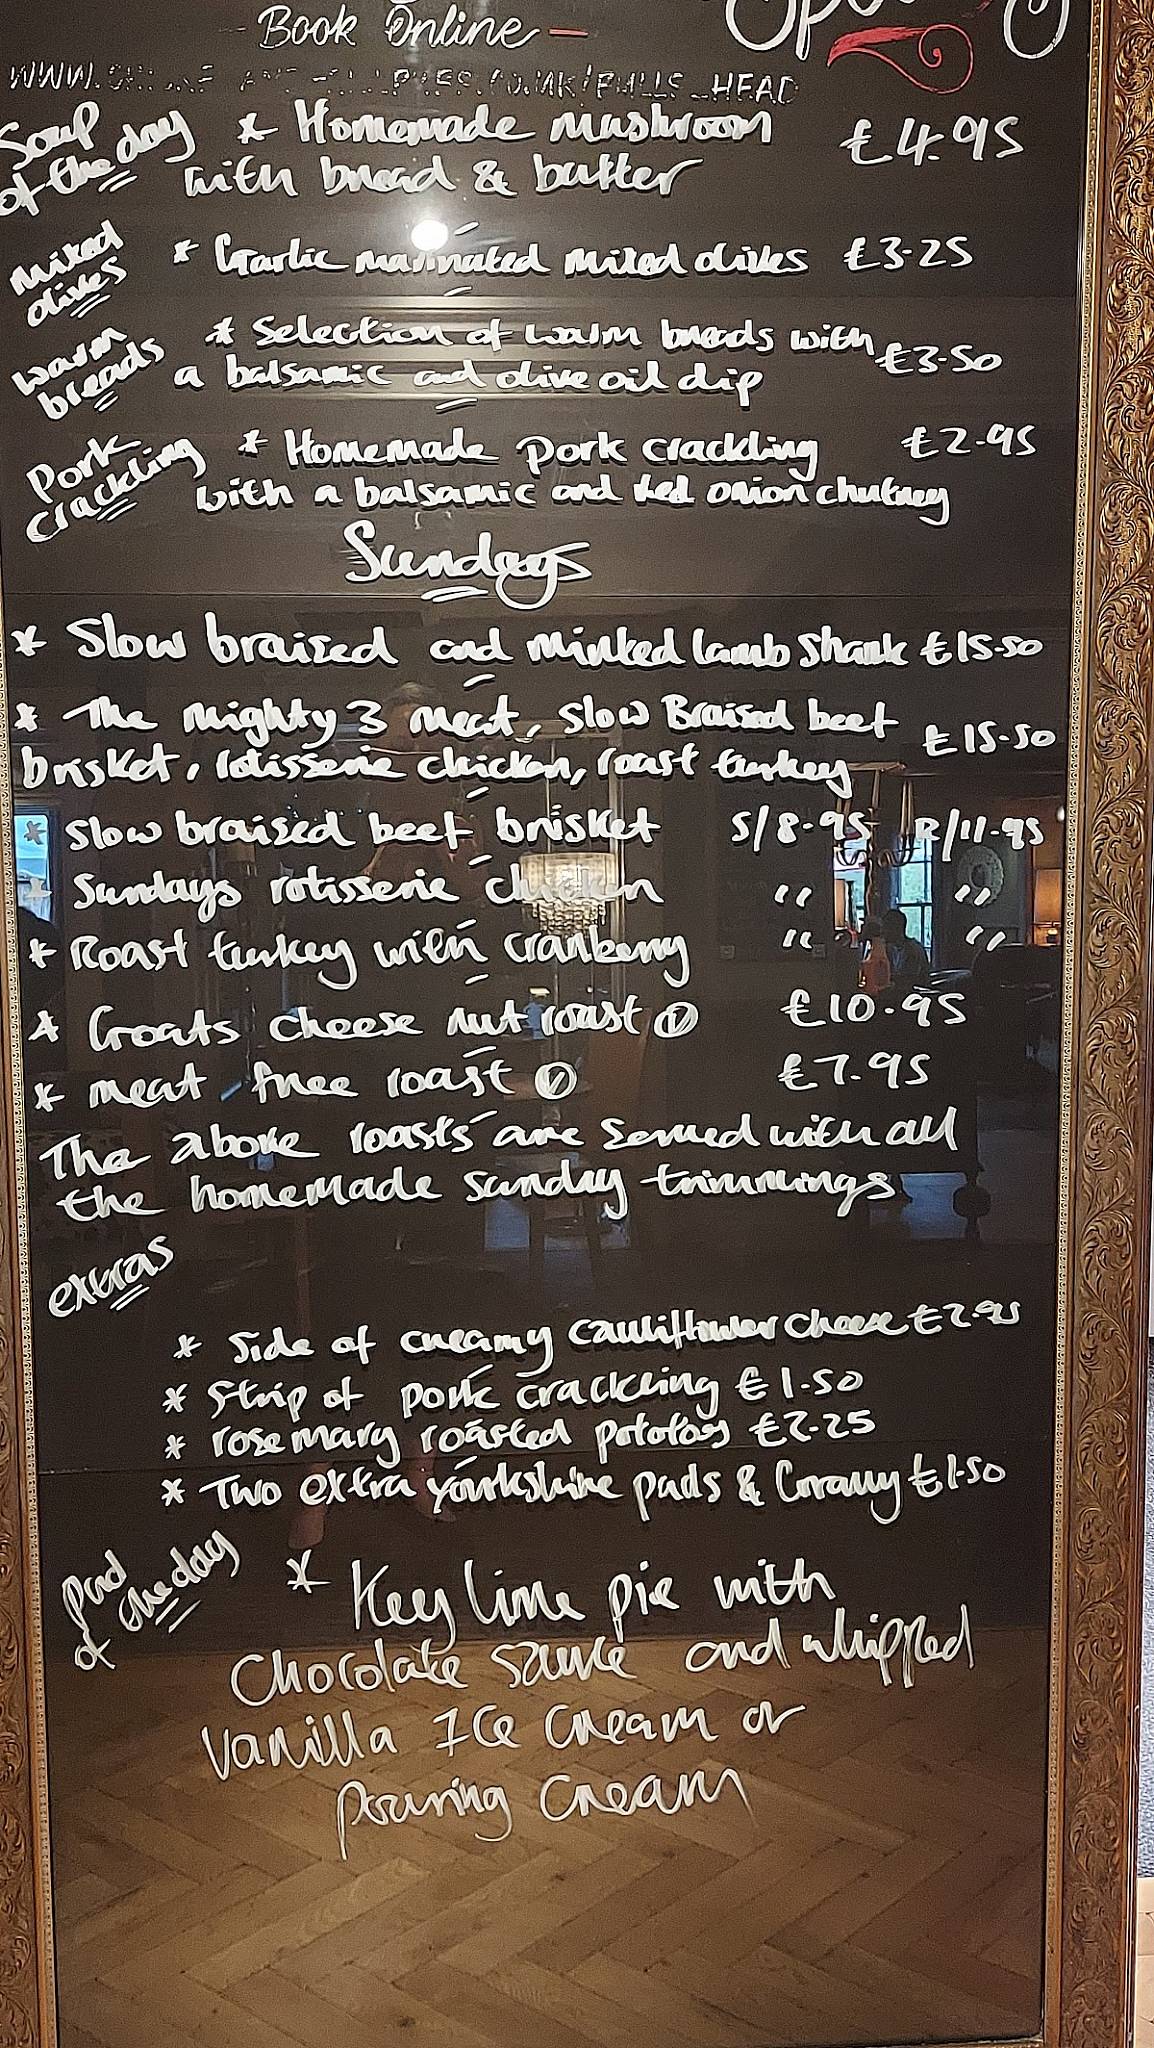 Book Online
Soup of the day * Homemade mushroom £4.95
with bread & butter
Mixed olives * Garlic marinated mixed olives £3-25
Warm breads * Selection of warm breads with £3-50
a balsamic and olive oil dip
Pork crackling * Homemade pork crackling £2-95
with a balsamic and red onion chutney
Sundays
* Slow braised and minted lamb shank £15-50
* The mighty 3 meat, slow Braised beef £15-50
brisket, rotisserie chicken, roast turkey
* Slow braised beef brisket S/8-95 R/11-95
* Sundays rotisserie chicken " "
* Roast turkey with cranberry " "
* Goats cheese nut roast Ⓥ £10.95
* meat free roast Ⓥ £7.95
The above roasts are served with all
the homemade Sunday trimmings
extras
* Side of creamy cauliflower cheese £2-95
* Strip of pork crackling £1.50
* rosemary roasted pototoes £2-25
* Two extra yourkshire puds & Gravy £1.50
pud of the day * Key lime pie with
Chocolate sauce and whipped
Vanilla Ice Cream or
pouring Cream